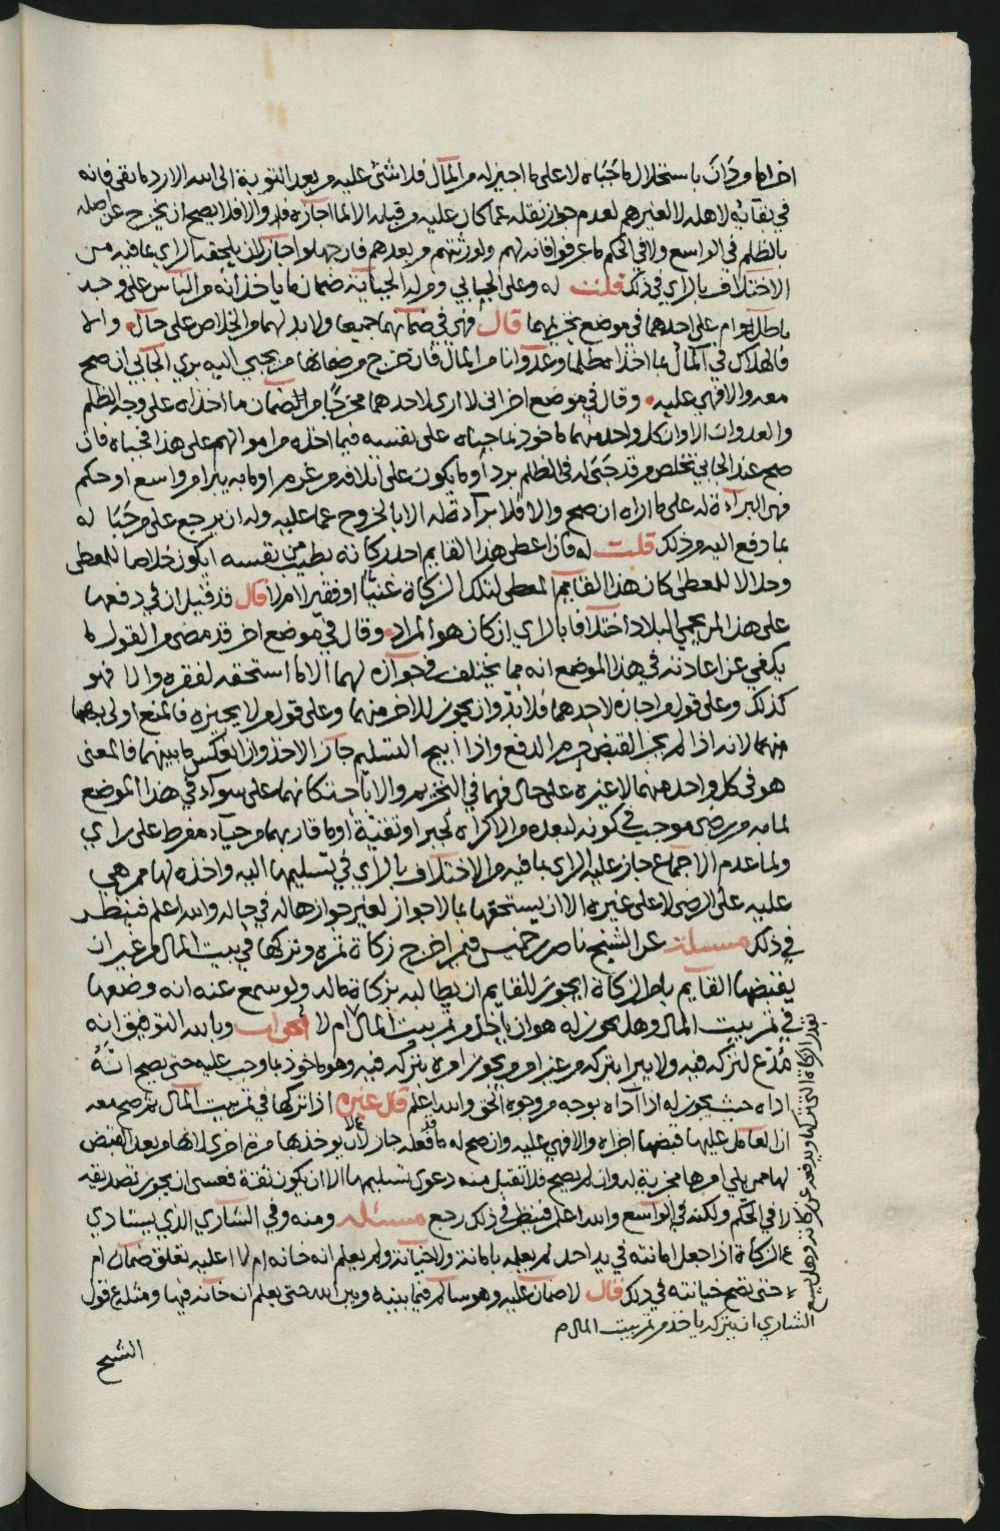 في بقائه لاهله لا لغيرهم لعدم جواز نقله عما كان عليه من قبله الا لما اجازه فله والا فلا يصح ان يخرج عن اصله
بالظلم في الواسع ولا في الحكم ما عرفوا فانه لهم ولورثتهم من بعدهم فان جهلوا جاز لان يلحقه الراي بما فيه من
الاختلاف بالراي في ذلك قلت له وعلى الجابي ومن له الجباية ضمان ما ياخذانه من الناس على وجه
باطل ام على احدهما في موضع تحريمهما قال فهي في ضمانهما جميعا ولا بد لهما من الخلاص على حال والا
فالهلاك في المال بما اخذا ظلما وعدوانا من المال فان خرج من ضمانها من يجبي اليه بري الجابي ان صح
معه والا فهي عليه وقال في موضع اخر اني لا ارى لاحدهما مخرجا من الضمان ما اخذاه على وجه الظلم
والعدوان الا وان كل واحد منهما ماخوذ بما جباه على نفسه فيما اخذه من اموالهم على هذا فجباه فان
صح عند الجابي تخلص من قد جبى له في الظلم برد او ما يكون على اتلافه من غرم او ما به يبرا من واسع او حكم
فهي البراءة له على ما اراه ان صح والا فلا براءة له الا بالخروج مما عليه وله ان يرجع على من جبا له
بما دفع اليه من ذلك قلت له فان اعطى هذا القايم احد زكاته بطيب من نفسه ايكون خلاصا للمعطي
وحلالا للمعطى كان هذا القايم المعطى لتلك الزكاة غنيا او فقيرا ام لا قال قد قيل ان في دفعها
على هذا لمن يحمي البلاد اختلافا بالراي ان كان هو المراد وقال في موضع اخر قد مضى من القول ما
يكفي عن اعادته في هذا الموضع انه مما يختلف في جوازه لهما الا ما استحقه لفقره والا فهو
كذلك وعلى قول من اجازه لاحدهما فلا بد وان يجوز للاخر منهما وعلى قول من لا يجيزه فالمنع اولى بهما
منهما لانه اذا لم يجز القبض حرم الدفع واذا ابيح التسليم جاز الاخذ وان انعكس ما بينهما فالمعنى
هو في كل واحد منهما لا غيره على حال فهما في التحريم والاباحة كانهما على سواء في هذا الموضع
لما به من رضى موجب في كونه لبعده من الاكراه لجبر او تقية او ما قاربهما من حياء مفرط على راي
ولما عدم الاجماع جاز عليه الراي بما فيه من الاختلاف بالراي في تسليمها اليه واخذه لها ممن هي
عليه على الرضى لا على غيره الا ان يستحقها بما لا جواز لغير جوازها له في حاله والله اعلم فينظر
في ذلك مسئلة عن الشيخ ناصر بن خميس فيمن اخرج زكاة تمره وتركها في بيت المال من غير ان
يقبضها القايم بامر الزكاة ايجوز للقايم ان يطالبه بزكاة ماله ولو سمع عنه انه وضعها
في تمر بيت المال وهل يجوز له هو ان ياخذ من تمر بيت المال ام لا الجواب وبالله التوفيق انه
مدع لتركه فيه ولا يبرا بتركه من غير امر من يجوز امره بتركه فيه وهو ماخوذ بما وجب عليه حتى يصح انه
اداه حيث يجوز له اذا اداه بوجه من وجوه الحق والله اعلم قال غيره اذا تركها في تمر بيت المال ثم صح معه
ان العامل عليها قبضها اجزاه والا فهي عليه وان صح له ما فعله جاز لان لا يوخذها مرة اخرى
لها ممن يلي امرها مجزية له وان لم يصح فلا تقبل منه دعوى تسليمها الا ان يكون ثقة فعسى ان يجوز تصديقه
لا في الحكم ولكنه في الواسع والله اعلم فينظر في ذلك رجع مسئلة ومنه وفي الشاري الذي يستادي
الزكاة اذا جعل امانته في يد احد لم يعلمه بامانة ولا خيانة ولم يعلم انه خانه ام لا اعليه تعلق ضمان ام
حتى تصح خيانته في ذلك قال لا ضمان عليه وهو سالم فيما بينه وبين الله حتى يعلم انه خانه فيها ومثله عن قول
الشاري ان يتركه ياخذ من تمر بيت المال م
الشيخ